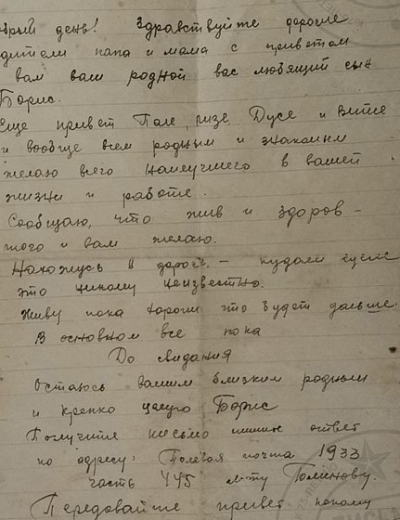 рый день! Здравствуйте дорогие
дители папа и мама с приветом
вам ваш родной вас любящий сын
Борис.
Еще привет Поле, Лизе, Дусе и Вите
и вообще всем родным и знакомым
желаю всего наилучшего в вашей
жизни и работе.
Сообщаю, что жив и здоров –
того и вам желаю.
Нахожусь в дороге. – куда
это никому неизвестно.
Живу пока хорошо что будет дальше.
В основном все пока
До свидания
Остаюсь вашим близким родным
и крепко целую Борис
Получите письмо пишите ответ
по адресу: Полевая почта 1933
часть 445 л-ту
Передовайте привет